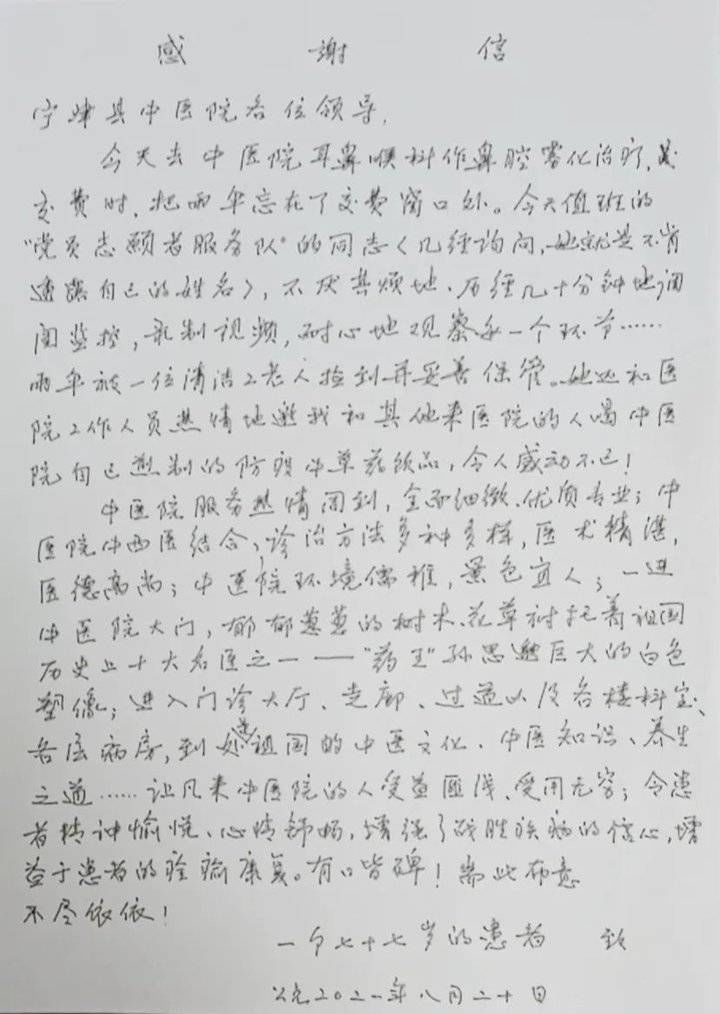 感謝信
宁津县中医院各位领导,
今天去中医院耳鼻喉科作鼻腔雾化治疗,
交费时,把雨伞忘在了交费窗口处。今天值班的
“党员志愿者服务队”的同志(几经询问,她就是不肯
透露自己的姓名),不厌其烦地、历经几十分钟地调
阅监控,录制视频,耐心地观察每一个环节……
雨伞被一位清洁工老人捡到并妥善保管。她还和医
院工作人员热情地邀我和其他来医院的人喝中医
院自己熬制的防疫中草药饮品,令人感动不已!
中医院服务热情周到,全面细微、优质专业;中
医院中西医结合、诊治方法多种多样,医术精湛,
医德高尚;中医院环境儒雅,景色宜人;一进
中医院大门,郁郁葱葱的树木、花草衬托着祖国
历史上十大名医之一——“药王”孙思邈巨大的白色
塑像;进入门诊大厅、走廊、过道以及各楼科室、
各层病房,到处是祖国的中医文化、中医知识、养生
之道……让凡来中医院的人受益匪浅、受用无穷;令患
者精神愉悦、心情舒畅,增强了战胜疾病的信心,增
益于患者的痊愈康复。有口皆碑!耑此布意
不尽依依!
一个七十七岁的患者 致
公元2021年八月二十日